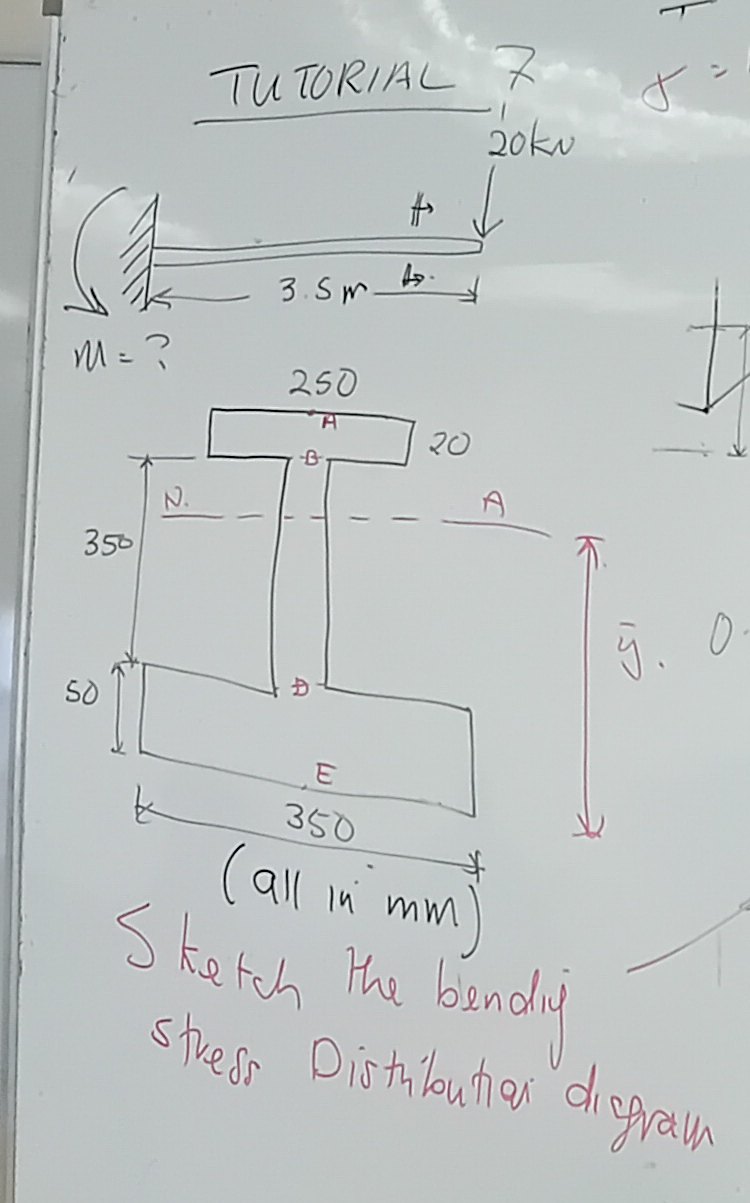 TUTORIAL 7
σ =
20kN
A
A
3.5m
M = ?
250
A
20
B
N.
A
350
ȳ.
0.
50
D
E
350
(all in mm)
Sketch the bending
stress Distribution diagram